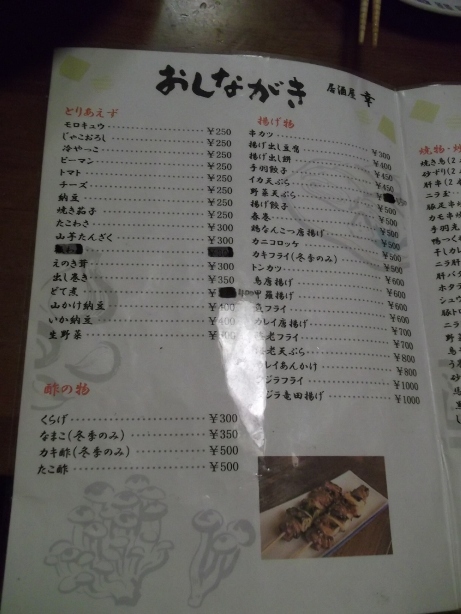 おしながき 居酒屋 幸
とりあえず
モロキュウ ¥250
じゃこおろし ¥250
冷やっこ ¥250
ピーマン ¥250
トマト ¥250
チーズ ¥250
納豆 ¥250
焼き茄子 ¥250
たこわさ ¥300
山芋たんざく ¥300
えのき茸 ¥300
出し巻き ¥350
どて煮
山かけ納豆 ¥400
いか納豆 ¥400
生野菜
酢の物
くらげ ¥300
なまこ(冬季のみ) ¥350
カキ酢(冬季のみ) ¥500
たこ酢 ¥500
揚げ物
串カツ ¥300
揚げ出し豆腐 ¥400
揚げ出し餅 ¥450
手羽餃子 ¥450
イカ天ぷら
野菜天ぷら ¥500
揚げ餃子 ¥500
春巻 ¥500
鶏なんこつ唐揚げ ¥500
カニコロッケ ¥500
カキフライ(冬季のみ) ¥500
トンカツ ¥500
鳥唐揚げ ¥600
甲羅揚げ ¥600
フライ ¥600
カレイ唐揚げ ¥700
老フライ ¥700
老天ぷら ¥800
レイあんかけ ¥800
ジラフライ ¥1000
ジラ竜田揚げ ¥1000
焼物・炒
焼き鳥(2
砂ずり(2
肝串(2
ニラ玉